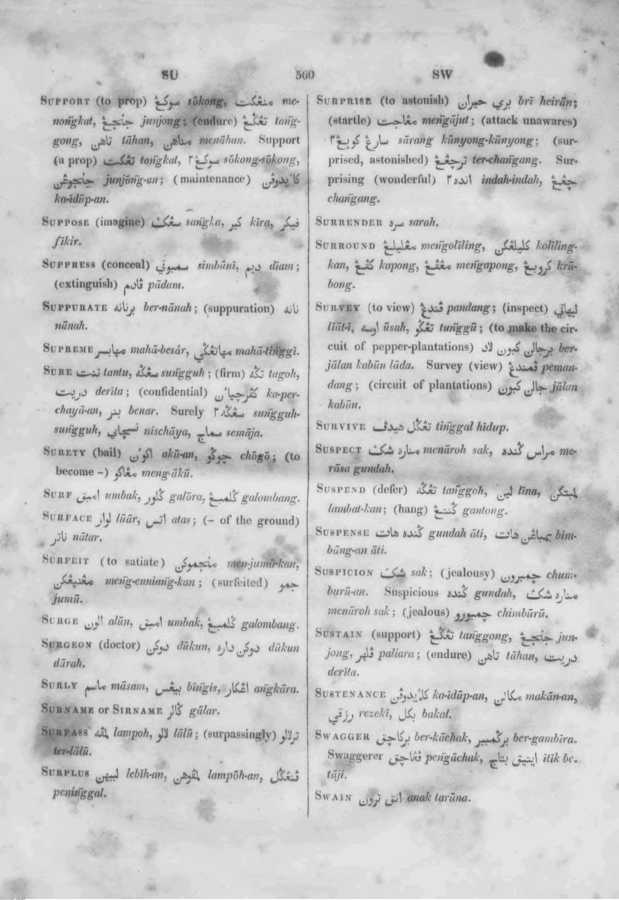 SU 560 SW
SUPPORT (to prop) سوكڠ sōkong, منڠكت me-
nongkat, جنجڠ junjong; (endure) تڠݢڠ tang-
gong, تاهن tāhan, مناهن menāhan. Support
(a prop) تڠكت tongkat, سوكڠ٢ sōkong-sōkong,
junjōng-an; (maintenance)
ka-idūp-an.
SUPPOSE (imagine) سڠك sangka, كير kīra, فيكر
fikir.
SUPPRESS (conceal) سمبوني simbūni, ديم diam;
(extinguish) ڤادم pādam.
SUPPURATE برنانه ber-nānah; (suppuration) نانه
nānah.
SUPREME مهابسر mahā-besār, مهاتڠݢي mahā-tinggi.
SURE تنت tantu, سڠݢه sungguh; (firm) تݢه tagoh,
دريت derīta; (confidential) كڤرچيائن ka-per-
chayā-an, بنر benar. Surely سڠݢه٢ sungguh-
sungguh, نسچاي nischāya, سماج semāja.
SURETY (bail) اكوئن akū-an, چوݢو chōgō; (to
become –) مڠاكو meng-ākū.
SURF امبق umbak, ݢلورا galōra, ݢلمبڠ galombang.
SURFACE لوار lūār, اتس atas; (– of the ground)
ناتر nātar.
SURFEIT (to satiate) منجموكن men-jumū-kan,
meng-enning-kan; (surfeited) جمو
jumū.
SURGE الون alūn, امبق umbak, ݢلمبڠ galombang.
SURGEON (doctor) دوكن dūkun, دوكن داره dūkun
dārah.
SURLY ماسم māsam, بيڠس bingis, اڠكار angkāra.
SURNAME or SIRNAME ݢالر gālar.
SURPASS لمڤه lampoh, لالو lālū; (surpassingly) ترلالو
ter-lālū.
SURPLUS لبيهن lebīh-an, لمڤوهن lampōh-an, ڤنڠݢل
peninggal.
SURPRISE (to astonish) بري حيران brī heirān;
(startle) مڠاجت mengājut; (attack unawares)
سارڠ كوڽڠ٢ sārang kūnyong-kūnyong; (sur-
prised, astonished) ترچڠڠ ter-changang. Sur-
prising (wonderful) انده٢ indah-indah, چڠڠ
changang.
SURRENDER سره sarah.
SURROUND مڠليلڠ mengolīling, كليلڠكن kolīling-
kan, كڤڠ kapong, مڠڤڠ mengapong, كروبڠ krū-
bong.
SURVEY (to view) ڤندڠ pandang; (inspect) ليهاتي
līāt-ī, اوسه ūsah, تڠݢو tunggū; (to make the cir-
cuit of pepper-plantations) برجالن كبون لاد ber-
jālan kabūn lāda. Survey (view) ڤمندڠ peman-
dang; (circuit of plantations) جالن كبون jālan
kabūn.
SURVIVE تڠݢل هيدف tinggal hīdup.
SUSPECT مناره شك menāroh sak, مراس ݢنده me-
rāsa gundah.
SUSPEND (defer) تڠݢه tanggoh, لين līna,
lambat-kan; (hang) ݢنتڠ gantong.
SUSPENSE ݢنده هات gundah āti, بمباڠن هات bim-
bāng-an āti.
SUSPICION شك sak; (jealousy) چمبروان chum-
burū-an. Suspicious ݢنده gundah, مناره شك
menāroh sak; (jealous) چمبورو chimbūrū.
SUSTAIN (support) تڠݢڠ tanggong, جنجڠ jun-
jong, ڤلهر paliara; (endure) تاهن tāhan, دريت
derīta.
SUSTENANCE ka-idūp-an, مكانن makān-an,
رزقي rezekī, بكل bakal.
SWAGGER بركاچق ber-kāchak, برݢمبير ber-gambīra.
Swaggerer ڤڠاچق pengāchak, ايتيق بتاج ītik be-
tāji.
SWAIN انق ترون anak tarūna.